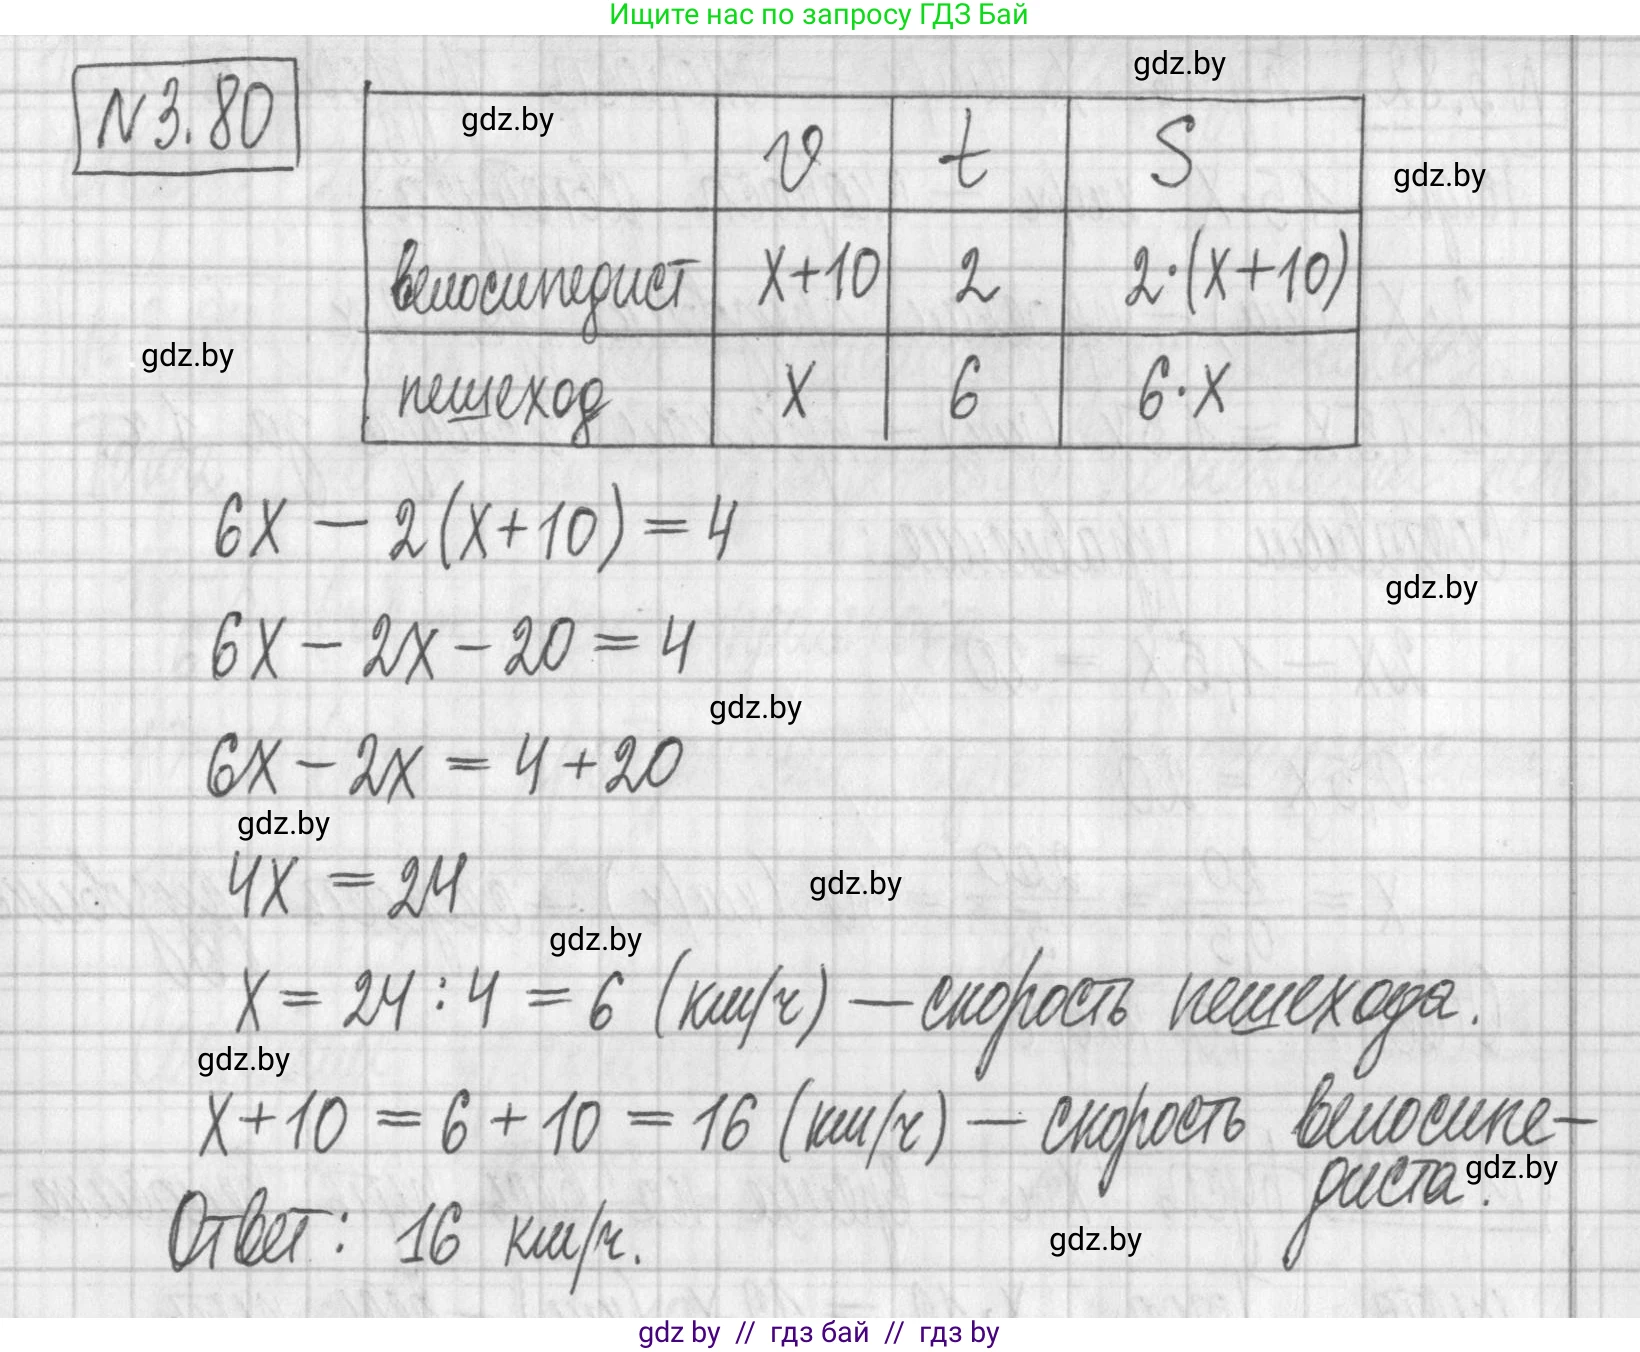 Ищите нас по запросу ГДЗ Бай
gdz.by
N 3.80
gdz.by
v t S
gdz.by
велосипедист x+10 2 2·(x+10)
gdz.by
пешеход x 6 6·x
6x − 2(x+10) = 4
gdz.by
6x − 2x − 20 = 4
gdz.by
6x − 2x = 4 + 20
gdz.by
4x = 24
gdz.by
gdz.by
x = 24 : 4 = 6 (км/ч) — скорость пешехода.
gdz.by
x + 10 = 6 + 10 = 16 (км/ч) — скорость велосипе-
диста.
gdz.by
Ответ: 16 км/ч.
gdz.by
gdz by // гдз бай // гдз by